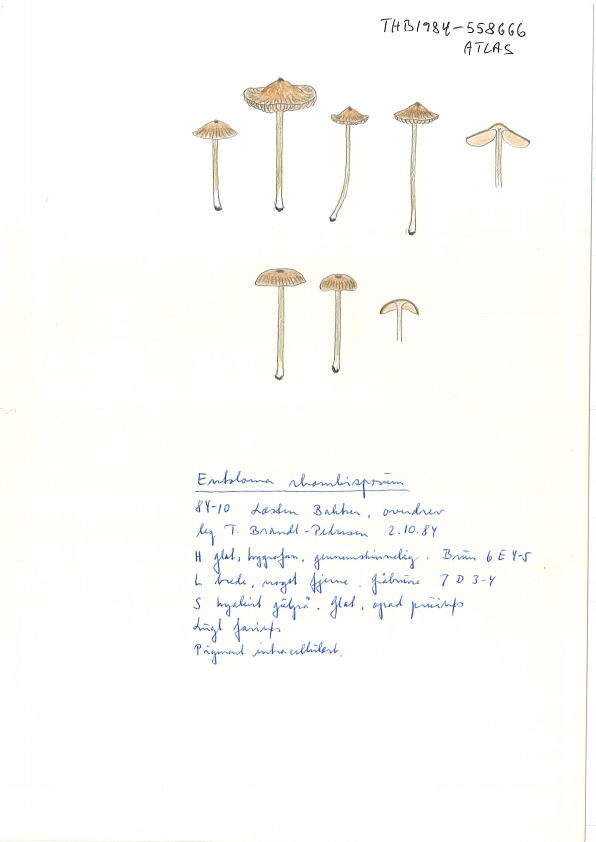 THB1984-558666
ATLAS
Entoloma rhombisporum
84-10 Læsten Bakker, overdrev
leg T. Brandt-Pedersen 2.10.84
H glat, hygrofan, gennemskinnelig. Brun 6 E 4-5
L brede, noget fjerne. Gråbrune 7 D 3-4
S hyalint gulgrå. Glat, opad pruinøs
Lugt farinøs
Pigment intracellulært.